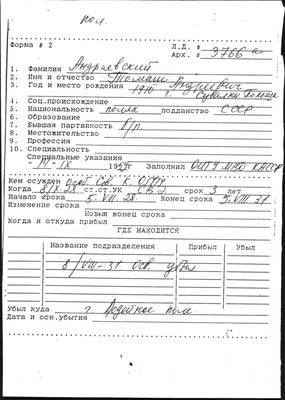 пол.
Форма # 2
Л.Д. #
Арх. # 3766
1. Фамилия Андриевский
2. Имя и отчество Томаш Андреевич
3. Год и место рождения 1910 г. Сувалки Польша
4. Соц.происхождение
5. Национальность поляк подданство СССР
6. Образование
7. Бывшая партийность б/п.
8. Местожительство
9. Профессия
10. Специальность
Специальные указания
Заполнил
Кем осужден
Когда ст.ст.УК срок 3 лет
Начало срока 5.VIII.28 Конец срока 5.VIII.31
Изменение срока
Новый конец срока
Когда и откуда прибыл
ГДЕ НАХОДИТСЯ
Название подразделения Прибыл Убыл
8/VIII-31 Осв. убыл
Убыл куда г. Лодейное поле
Дата и осн.убытия